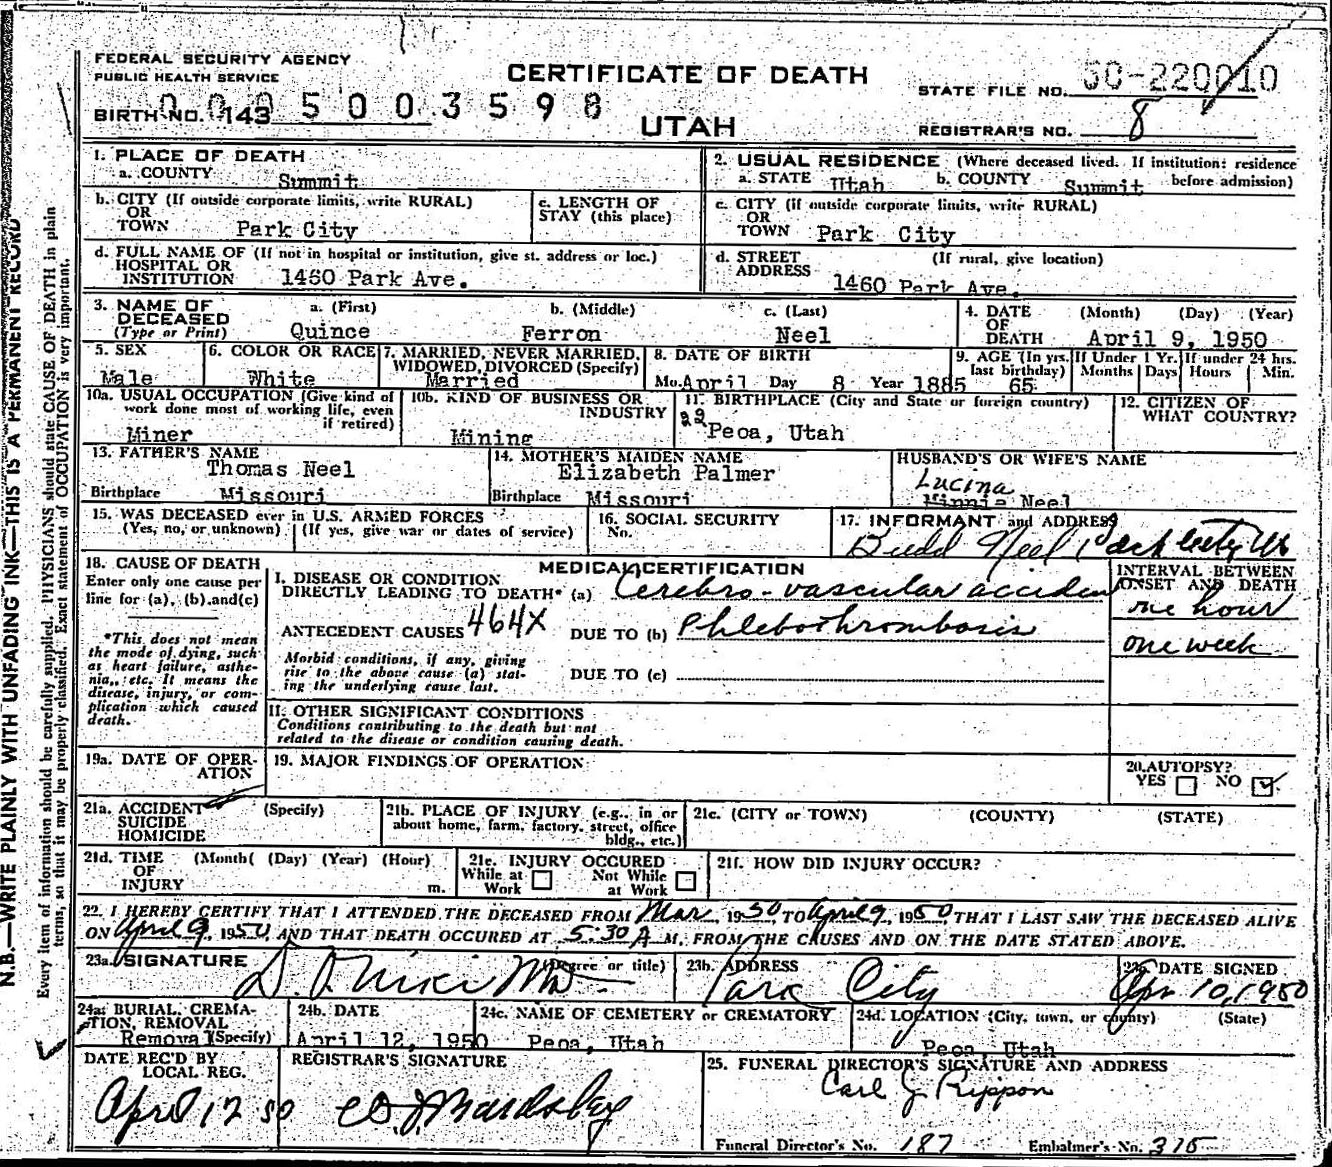 FEDERAL SECURITY AGENCY
PUBLIC HEALTH SERVICE
CERTIFICATE OF DEATH
UTAH
BIRTH NO. 143
0005003598
STATE FILE NO. 50-220010
REGISTRAR'S NO. 8
1. PLACE OF DEATH
a. COUNTY Summit
2. USUAL RESIDENCE (Where deceased lived. If institution: residence before admission)
a. STATE Utah b. COUNTY Summit
b. CITY (If outside corporate limits, write RURAL)
OR
TOWN Park City
c. LENGTH OF
STAY (this place)
c. CITY (if outside corporate limits, write RURAL)
OR
TOWN Park City
d. FULL NAME OF (If not in hospital or institution, give st. address or loc.)
HOSPITAL OR
INSTITUTION 1460 Park Ave.
d. STREET (If rural, give location)
ADDRESS 1460 Park Ave.
3. NAME OF DECEASED
(Type or Print)
a. (First) b. (Middle) c. (Last)
Quince Ferron Neel
4. DATE OF DEATH (Month) (Day) (Year)
April 9, 1950
5. SEX
Male
6. COLOR OR RACE
White
7. MARRIED, NEVER MARRIED,
WIDOWED, DIVORCED (Specify)
Married
8. DATE OF BIRTH
Mo. April Day 8 Year 1885
9. AGE (In yrs. last birthday)
65
If Under 1 Yr.
Months Days
If under 24 hrs.
Hours Min.
10a. USUAL OCCUPATION (Give kind of
work done most of working life, even
if retired)
Miner
10b. KIND OF BUSINESS OR
INDUSTRY
Mining
11. BIRTHPLACE (City and State or foreign country)
Peoa, Utah
12. CITIZEN OF
WHAT COUNTRY?
13. FATHER'S NAME
Thomas Neel
Birthplace Missouri
14. MOTHER'S MAIDEN NAME
Elizabeth Palmer
Birthplace Missouri
HUSBAND'S OR WIFE'S NAME
Lucina
Minnie Neel
15. WAS DECEASED ever in U.S. ARMED FORCES
(Yes, no, or unknown) (If yes, give war or dates of service)
16. SOCIAL SECURITY
No.
17. INFORMANT and ADDRESS
Budd Neel Park City Ut
18. CAUSE OF DEATH
Enter only one cause per
line for (a), (b), and (c)
*This does not mean
the mode of dying, such
as heart failure, asthe-
nia, etc. It means the
disease, injury, or com-
plication which caused
death.
MEDICAL CERTIFICATION
I. DISEASE OR CONDITION
DIRECTLY LEADING TO DEATH* (a) Cerebro-vascular accident
ANTECEDENT CAUSES 464X DUE TO (b) Phlebothrombosis
Morbid conditions, if any, giving
rise to the above cause (a) stat-
ing the underlying cause last.
DUE TO (c)
INTERVAL BETWEEN
ONSET AND DEATH
one hour
one week
II. OTHER SIGNIFICANT CONDITIONS
Conditions contributing to the death but not
related to the disease or condition causing death.
19a. DATE OF OPER-
ATION
19. MAJOR FINDINGS OF OPERATION
20. AUTOPSY?
YES NO
21a. ACCIDENT (Specify)
SUICIDE
HOMICIDE
21b. PLACE OF INJURY (e.g., in or
about home, farm, factory, street, office
bldg., etc.)
21c. (CITY or TOWN) (COUNTY) (STATE)
21d. TIME (Month( (Day) (Year) (Hour)
OF
INJURY m.
21e. INJURY OCCURED
While at Work Not While at Work
21f. HOW DID INJURY OCCUR?
22. I HEREBY CERTIFY THAT I ATTENDED THE DECEASED FROM Mar, 1950 TO April 9, 1950 THAT I LAST SAW THE DECEASED ALIVE
ON April 9, 1950 AND THAT DEATH OCCURED AT 5:30 A M. FROM THE CAUSES AND ON THE DATE STATED ABOVE.
23a. SIGNATURE (Degree or title)
23b. ADDRESS
Park City
23c. DATE SIGNED
Apr 10, 1950
24a. BURIAL, CREMA-
TION, REMOVAL
(Specify) Removal
24b. DATE
April 12, 1950
24c. NAME OF CEMETERY or CREMATORY
Peoa, Utah
24d. LOCATION (City, town, or county) (State)
Peoa, Utah
DATE REC'D BY
LOCAL REG.
April 12 50
REGISTRAR'S SIGNATURE
25. FUNERAL DIRECTOR'S SIGNATURE AND ADDRESS
Carl J Rippon
Funeral Director's No. 187 Embalmer's No. 315
N.B.—WRITE PLAINLY WITH UNFADING INK—THIS IS A PERMANENT RECORD
Every item of information should be carefully supplied. PHYSICIANS should state CAUSE OF DEATH in plain
terms, so that it may be properly classified. Exact statement of OCCUPATION is very important.